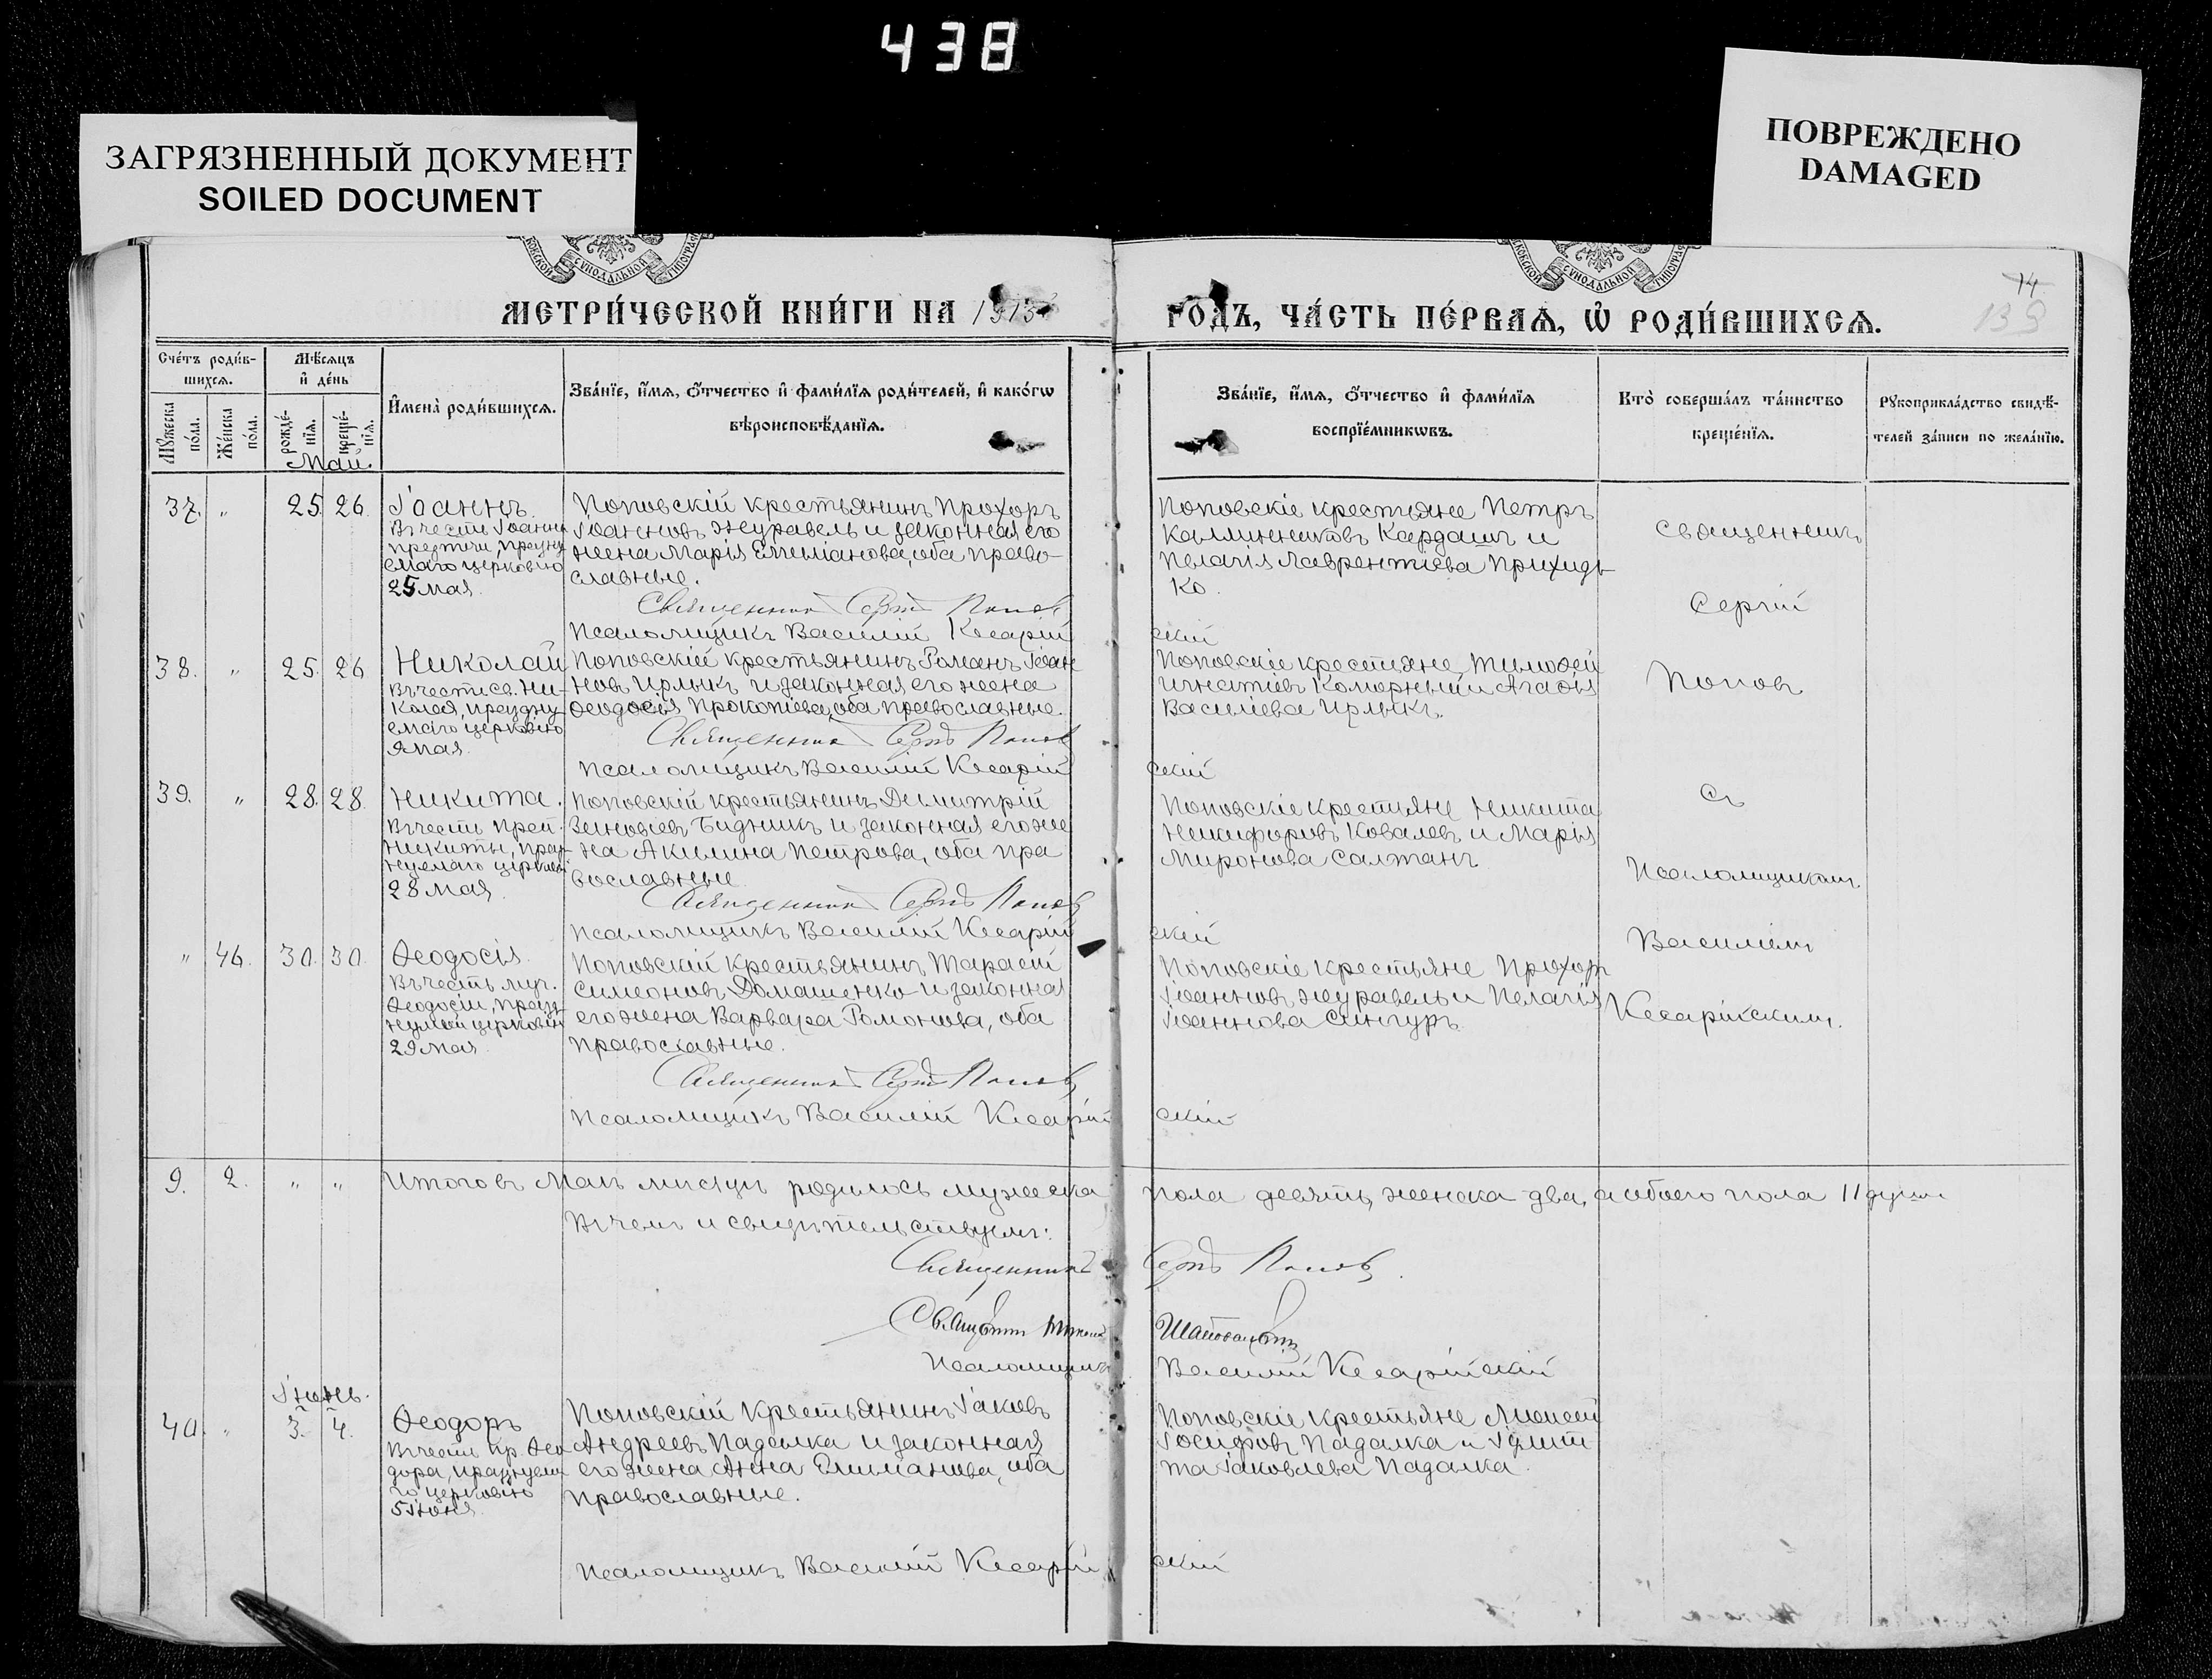 438
ЗАГРЯЗНЕННЫЙ ДОКУМЕНТ
SOILED DOCUMENT
ПОВРЕЖДЕНО
DAMAGED
МЕТРИ́ЧЕСКОЙ КНИ́ГИ НА 1913
ГОДЪ, ЧА́СТЬ ПЕ́РВАѦ, Ѡ҆ РОДИ́ВШИХСѦ.
14
139
Сче́тъ роди́в-
шихсѧ.
Мѣ́сѧцъ
и҆ де́нь
Мꙋ́жеска
по́ла.
Же́нска
по́ла.
рожде́-
нїѧ.
креще́-
нїѧ.
И҆мена̀ роди́вшихсѧ.
Зва́нїе, и҆́мѧ, ѻ҆́тчество и҆ фами́лїѧ роди́телей, и҆ како́гѡ
вѣроисповѣ́данїѧ.
Зва́нїе, и҆́мѧ, ѻ҆́тчество и҆ фами́лїѧ
воспрїе́мникѡвъ.
Кто̀ соверша́лъ та́инство
креще́нїѧ.
Рꙋкоприкла́дство свидѣ́-
телей за́писи по жела́нїю.
Май.
37. " 25. 26. Іоаннъ.
Въ честь Іоанна
Предтечи, праздну
емаго церковію
25 мая.
Поповскій крестьянинъ Прохоръ
Іоанновъ Журавель и законная его
жена Марія Емиліанова, оба право-
славные.
Священникъ Сергій Поповъ
Псаломщикъ Василій Кесарійскій
Поповскіе крестьяне Петръ
Каллинниковъ Кардашъ и
Пелагія Лаврентіева Приходь
ко.
Священникъ
Сергій
Поповъ
съ
Псаломщикомъ
Василіемъ
Кесарійскимъ.
38. " 25. 26 Николай
Въ честь св. Ни-
колая, праздну
емаго церковію
9 мая.
Поповскій крестьянинъ Романъ Іоан
новъ Ирлыкъ и законная его жена
Ѳеодосія Прокопіева, оба православные.
Священникъ Сергій Поповъ
Псаломщикъ Василій Кесарійскій
Поповскіе крестьяне, Тимоѳей
Игнатіевъ Коморный и Агаѳія
Василіева Ирлыкъ.
39. " 28. 28. Никита.
Въ честь преп.
Никиты, празд-
нуемаго церковію
28 мая
Поповскій крестьянинъ Димитрій
Зиновіевъ Бидникъ и законная его же
на Акилина Петрова, оба пра
вославные.
Священникъ Сергій Поповъ
Псаломщикъ Василій Кесарійскій
Поповскіе крестьяне Никита
Никифоровъ Ковалевъ и Марія
Миронова Салтанъ
" 46. 30. 30. Ѳеодосія.
Въ честь муч.
Ѳеодосіи, празд-
нуемой церковію
29 мая.
Поповскій крестьянинъ Тарасій
Симеоновъ Домашенко и законная
его жена Варвара Романова, оба
православные.
Священникъ Сергій Поповъ
Псаломщикъ Василій Кесарійскій
Поповскіе крестьяне Прохоръ
Іоанновъ Журавель и Пелагія
Іоаннова Сингуръ
9. 2. " " Итого въ Маѣ мѣсяцѣ родилось мужеска пола девять, женска два, а обоего пола 11 душъ
Въ чемъ и свидѣтельствуемъ:
Священникъ Сергій Поповъ.
Псаломщикъ Василій Кесарійскій
Іюнь.
40. " 3. 4. Ѳеодоръ
Въ честь пр. Ѳео
дора, празднуема
го церковію
5 Іюня.
Поповскій крестьянинъ Іаковъ
Андреевъ Падалка и законная
его жена Анна Емиліанова, оба
православные.
Псаломщикъ Василій Кесарійскій
Поповскіе крестьяне Моисей
Іосифовъ Падалка и Іулит
та Іаковлева Падалка.